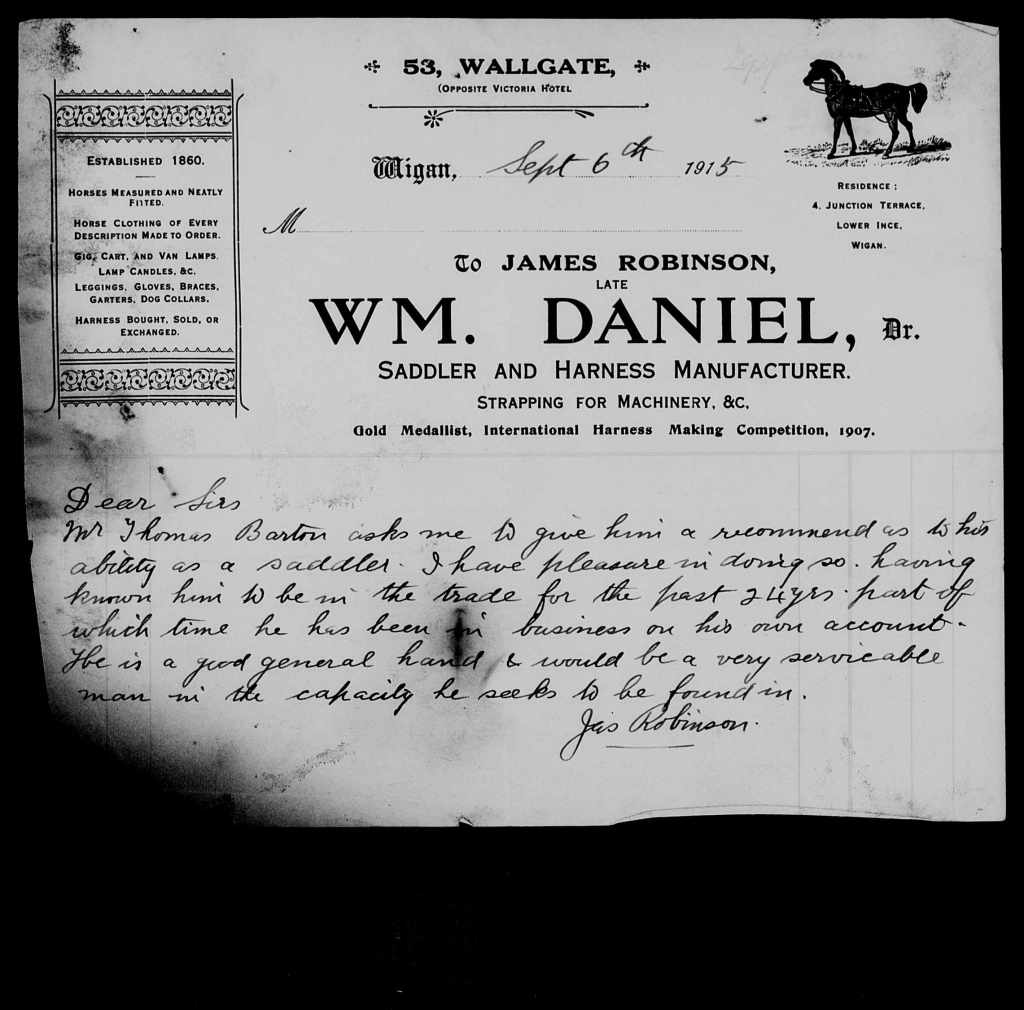 53, WALLGATE,
(OPPOSITE VICTORIA HOTEL
Wigan, Sept 6th 1915
ESTABLISHED 1860.
HORSES MEASURED AND NEATLY
FITTED.
HORSE CLOTHING OF EVERY
DESCRIPTION MADE TO ORDER.
GIG, CART, AND VAN LAMPS.
LAMP CANDLES, &C.
LEGGINGS, GLOVES, BRACES,
GARTERS, DOG COLLARS.
HARNESS BOUGHT, SOLD, OR
EXCHANGED.
RESIDENCE:
4, JUNCTION TERRACE,
LOWER INCE,
WIGAN.
M
To JAMES ROBINSON,
LATE
WM. DANIEL, Dr.
SADDLER AND HARNESS MANUFACTURER.
STRAPPING FOR MACHINERY, &C,
Gold Medallist, International Harness Making Competition, 1907.
Dear Sirs
Mr Thomas Barton asks me to give him a recommend as to his
ability as a saddler. I have pleasure in doing so. having
known him to be in the trade for the past 24yrs. part of
which time he has been in business on his own account.
He is a good general hand & would be a very servicable
man in the capacity he seeks to be found in.
Jas Robinson.